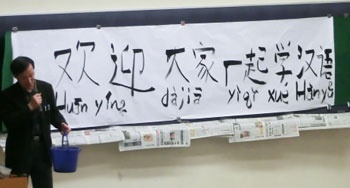 欢迎 大家一起学汉語
Huān yíng dàjiā yìqǐ xué Hànyǔ